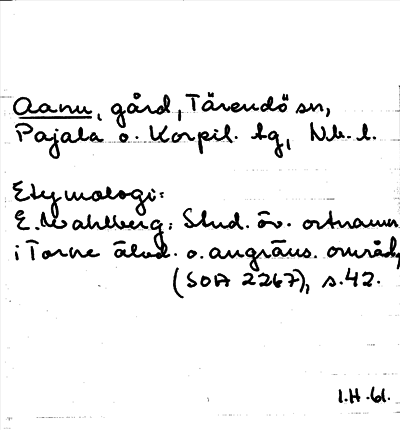 Aanu, gård, Tärendö sn,
Pajala o. Korpil. tg, Nb. l.
Etymologi:
E. Wahlberg: Stud. öv. ortnamn
i Torne älvd. o. angräns. områd.
(SOA 2267), s. 42.
I.H. 61.